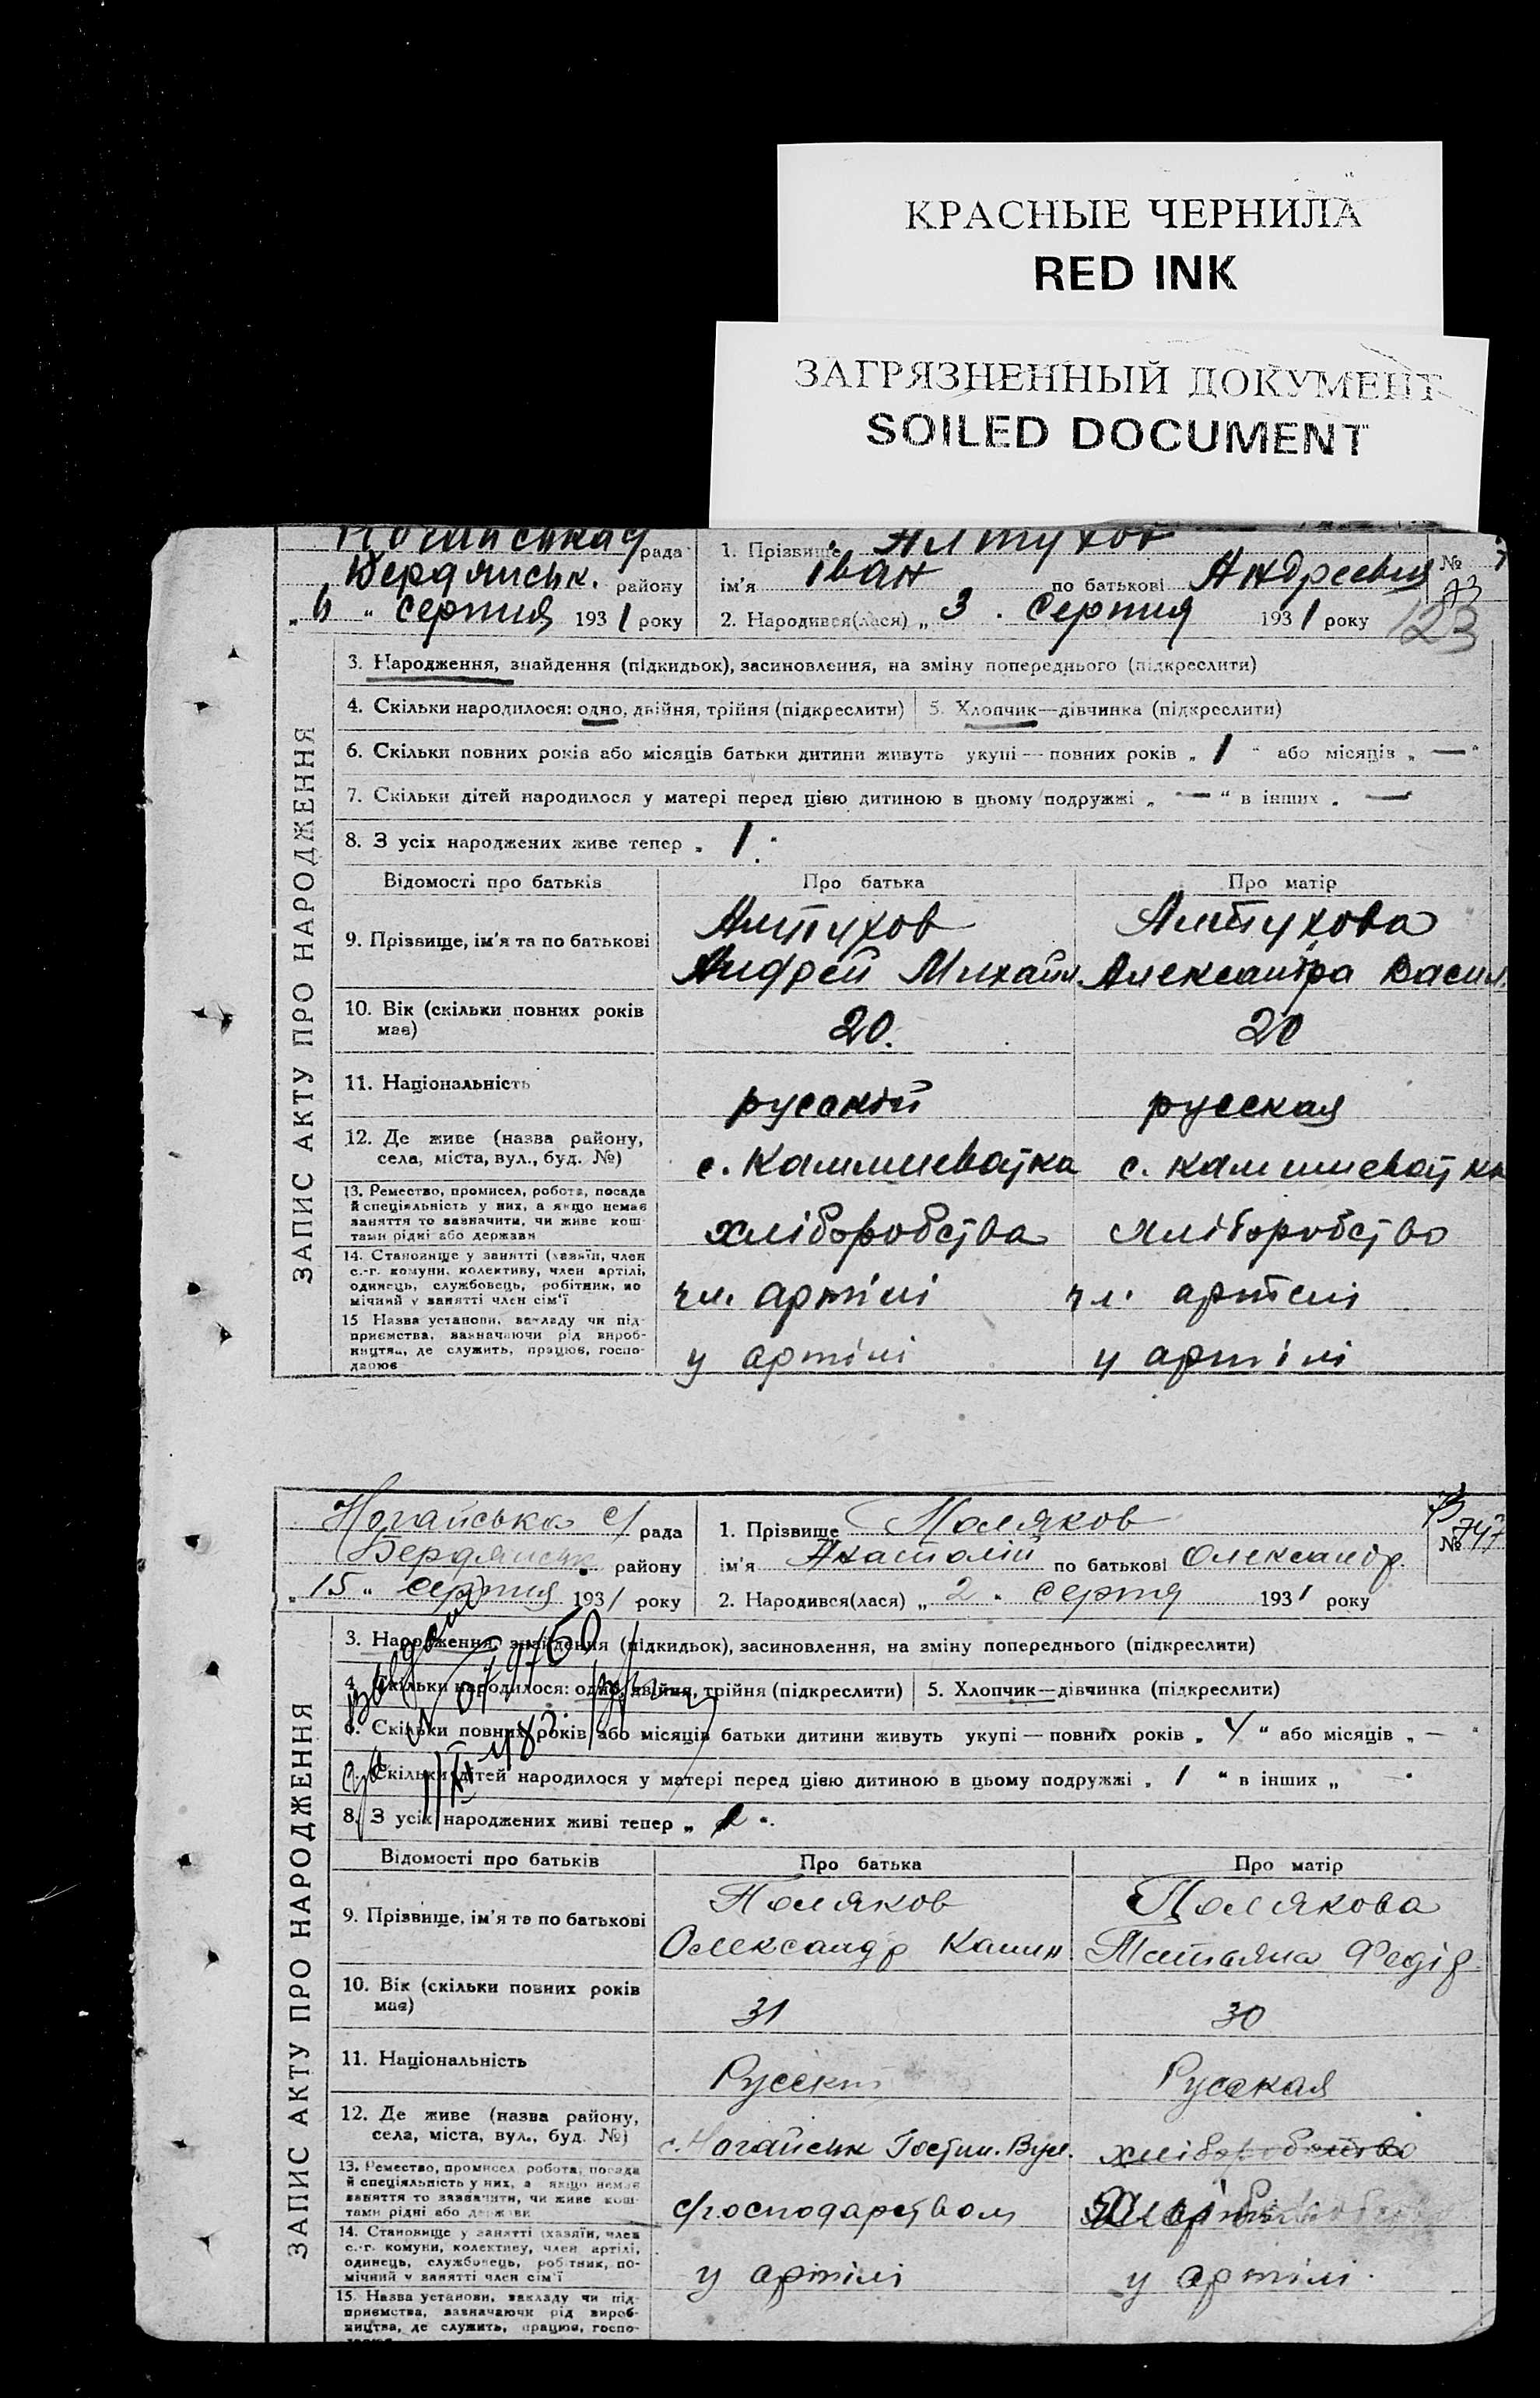 КРАСНЫЕ ЧЕРНИЛА
RED INK
ЗАГРЯЗНЕННЫЙ ДОКУМЕНТ
SOILED DOCUMENT
рада
Бердянськ. району
" серпня 1931 року
1. Прізвище Алтухов
№
ім'я Іван по батькові Андреевич
73
2. Народився(лася) „ 3 . Серпня 1931 року
123
ЗАПИС АКТУ ПРО НАРОДЖЕННЯ
3. Народження, знайдення (підкидьок), засиновлення, на зміну попереднього (підкреслити)
4. Скільки народилося: одно, двійня, трійня (підкреслити)
5. Хлопчик—дівчинка (підкреслити)
6. Скільки повних років або місяців батьки дитини живуть укупі — повних років „ 1 “ або місяців „ — “
7. Скільки дітей народилося у матері перед цією дитиною в цьому подружжі „ — “ в інших „ —
8. З усіх народжених живе тепер „ 1 .
Відомості про батьків
Про батька
Про матір
9. Прізвище, ім'я та по батькові
Алтухов
Андрей Михайл.
Алтухова
Александра Васил.
10. Вік (скільки повних років має)
20.
20
11. Національність
русский
русская
12. Де живе (назва району,
села, міста, вул., буд. №)
с. Каммшеватка
с. Каммшеватка
13. Ремество, промисел, робота, посада
й спеціяльність у них, а якщо немає
заняття то зазначити, чи живе кош-
тами рідні або держави
хліборобства
хліборобство
14. Становище у занятті (хазяїн, член
с.-г. комуни, колективу, член артілі,
одинець, службовець, робітник, по
мічний у занятті член сім'ї
чл. артілі
чл. артелі
15 Назва установи, закладу чи під-
приємства, зазначаючи рід вироб-
ництва, де служить, працює, госпо-
дарює
у артілі
у артілі
Ногайська с/рада
Бердянськ. району
„ 15 “ серпня 1931 року
1. Прізвище Поляков
№ 747
ім'я Анатолій по батькові Олександр.
2. Народився(лася) „ 2 . серпня 1931 року
ЗАПИС АКТУ ПРО НАРОДЖЕННЯ
3. Народження, знайдення (підкидьок), засиновлення, на зміну попереднього (підкреслити)
4. Скільки народилося: одно, двійня, трійня (підкреслити)
5. Хлопчик—дівчинка (підкреслити)
6. Скільки повних років або місяців батьки дитини живуть укупі — повних років „ “ або місяців „ —
7. Скільки дітей народилося у матері перед цією дитиною в цьому подружжі „ 1 “ в інших „ —
8. З усіх народжених живі тепер „ 2 “.
Відомості про батьків
Про батька
Про матір
9. Прізвище, ім'я та по батькові
Поляков
Олександр
Полякова
Татьяна Федір
10. Вік (скільки повних років має)
31
30
11. Національність
Русский
Русская
12. Де живе (назва району,
села, міста, вул., буд. №)
с. Ногайськ Вул.
хліборобство
13. Ремество, промисел робота, посада
й спеціяльність у них, а якщо немає
заняття то зазначити, чи живе кош-
тами рідні або держави
господарством
14. Становище у занятті (хазяїн, член
с.-г. комуни, колективу, член артілі,
одинець, службовець, робітник, по-
мічний у занятті член сім'ї
у артілі
у артілі
15. Назва установи, закладу чи під-
приємства, зазначаючи рід вироб-
ництва, де служить, працює, госпо-